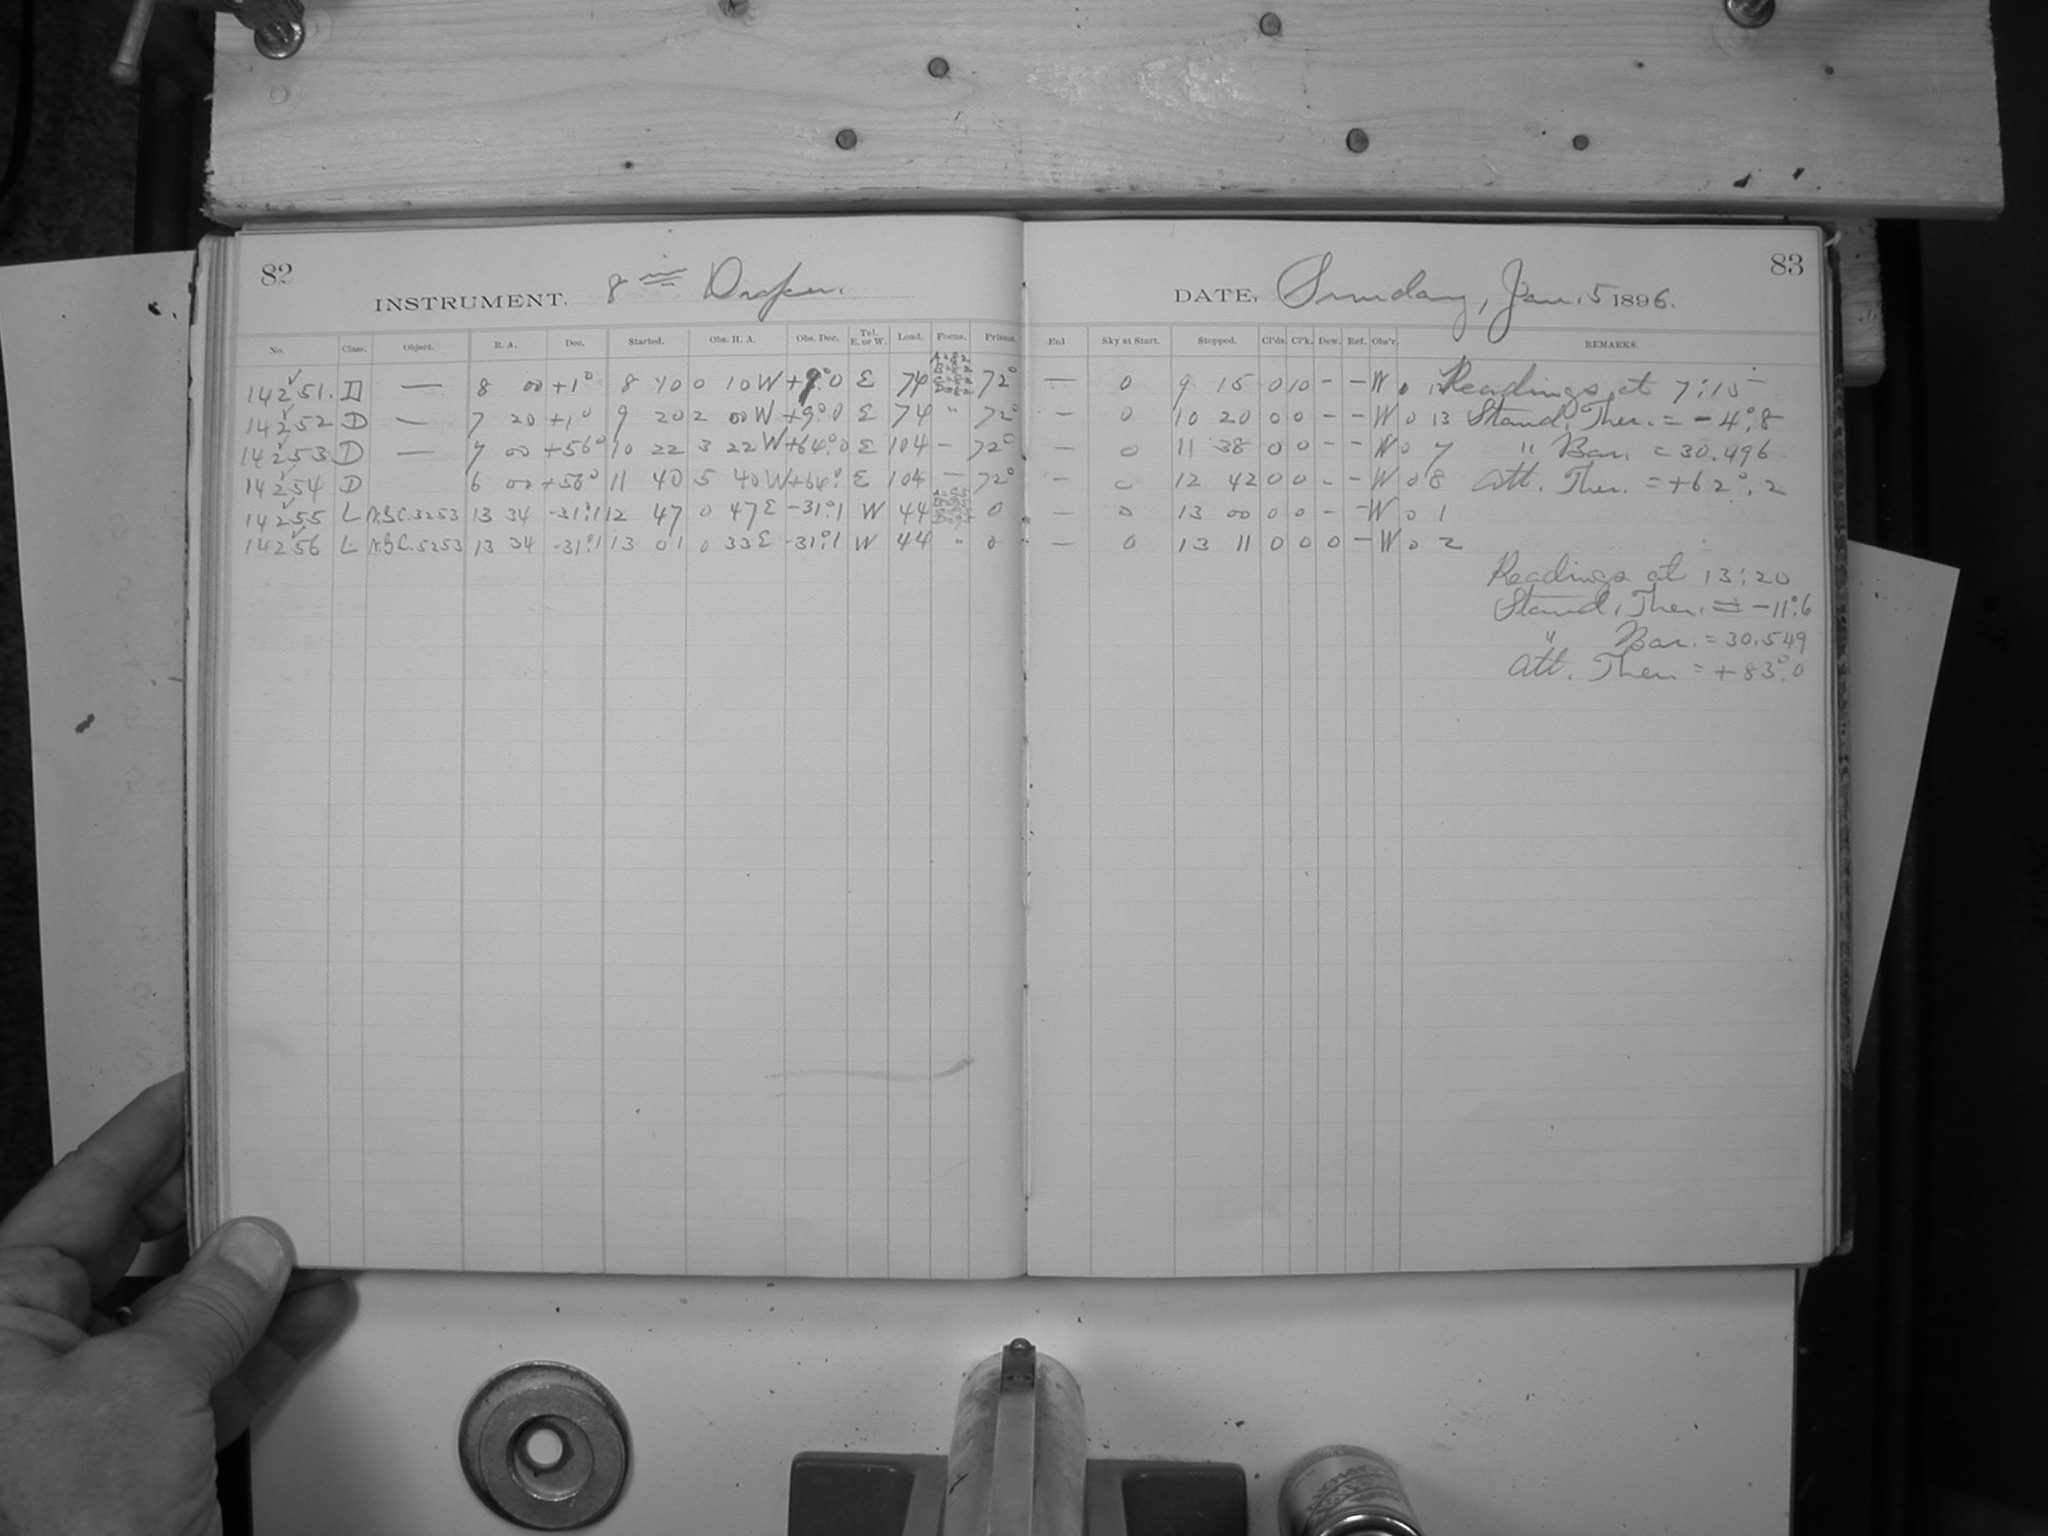 82
INSTRUMENT, 8 in Draper.
No. Class. Object. R. A. Dec. Started. Obs. H. A. Obs. Dec. Tel. E. or W. Load. Focus. Prisms.
14251. D — 8 00 +1° 8 10 0 10 W +9°.0 E 74 72°
14252 D — 7 20 +1° 9 20 2 00 W +9°.0 E 74 " 72°
14253 D — 7 00 +56° 10 22 3 22 W +64°.0 E 104 - 72°
14254 D 6 00 +56° 11 40 5 40 W +64° E 104 — 72°
14255 L A.G.C. 5253 13 34 -31°.1 12 47 0 47 E -31°.1 W 44 0
14256 L A.G.C. 5253 13 34 -31°.1 13 01 0 33 E -31°.1 W 44 " 0
83
DATE, Sunday, Jan. 5 1896.
Enl Sky at Start. Stopped. Cl'ds. Cl'k. Dew. Ref. Obs'r. REMARKS.
— 0 9 15 0 10 - - W 0 Readings at 7:15
— 0 10 20 0 0 - - W 0 13 Stand. Ther. = -4°.8
— 0 11 38 0 0 - - W 0 7 " Bar. = 30.496
— 0 12 42 0 0 - - W 0 8 Att. Ther. = +62°.2
— 0 13 00 0 0 - - W 0 1
— 0 13 11 0 0 0 - W 0 2
Readings at 13:20
Stand. Ther. = -11°.6
" Bar. = 30.549
Att. Ther. = +83°.0